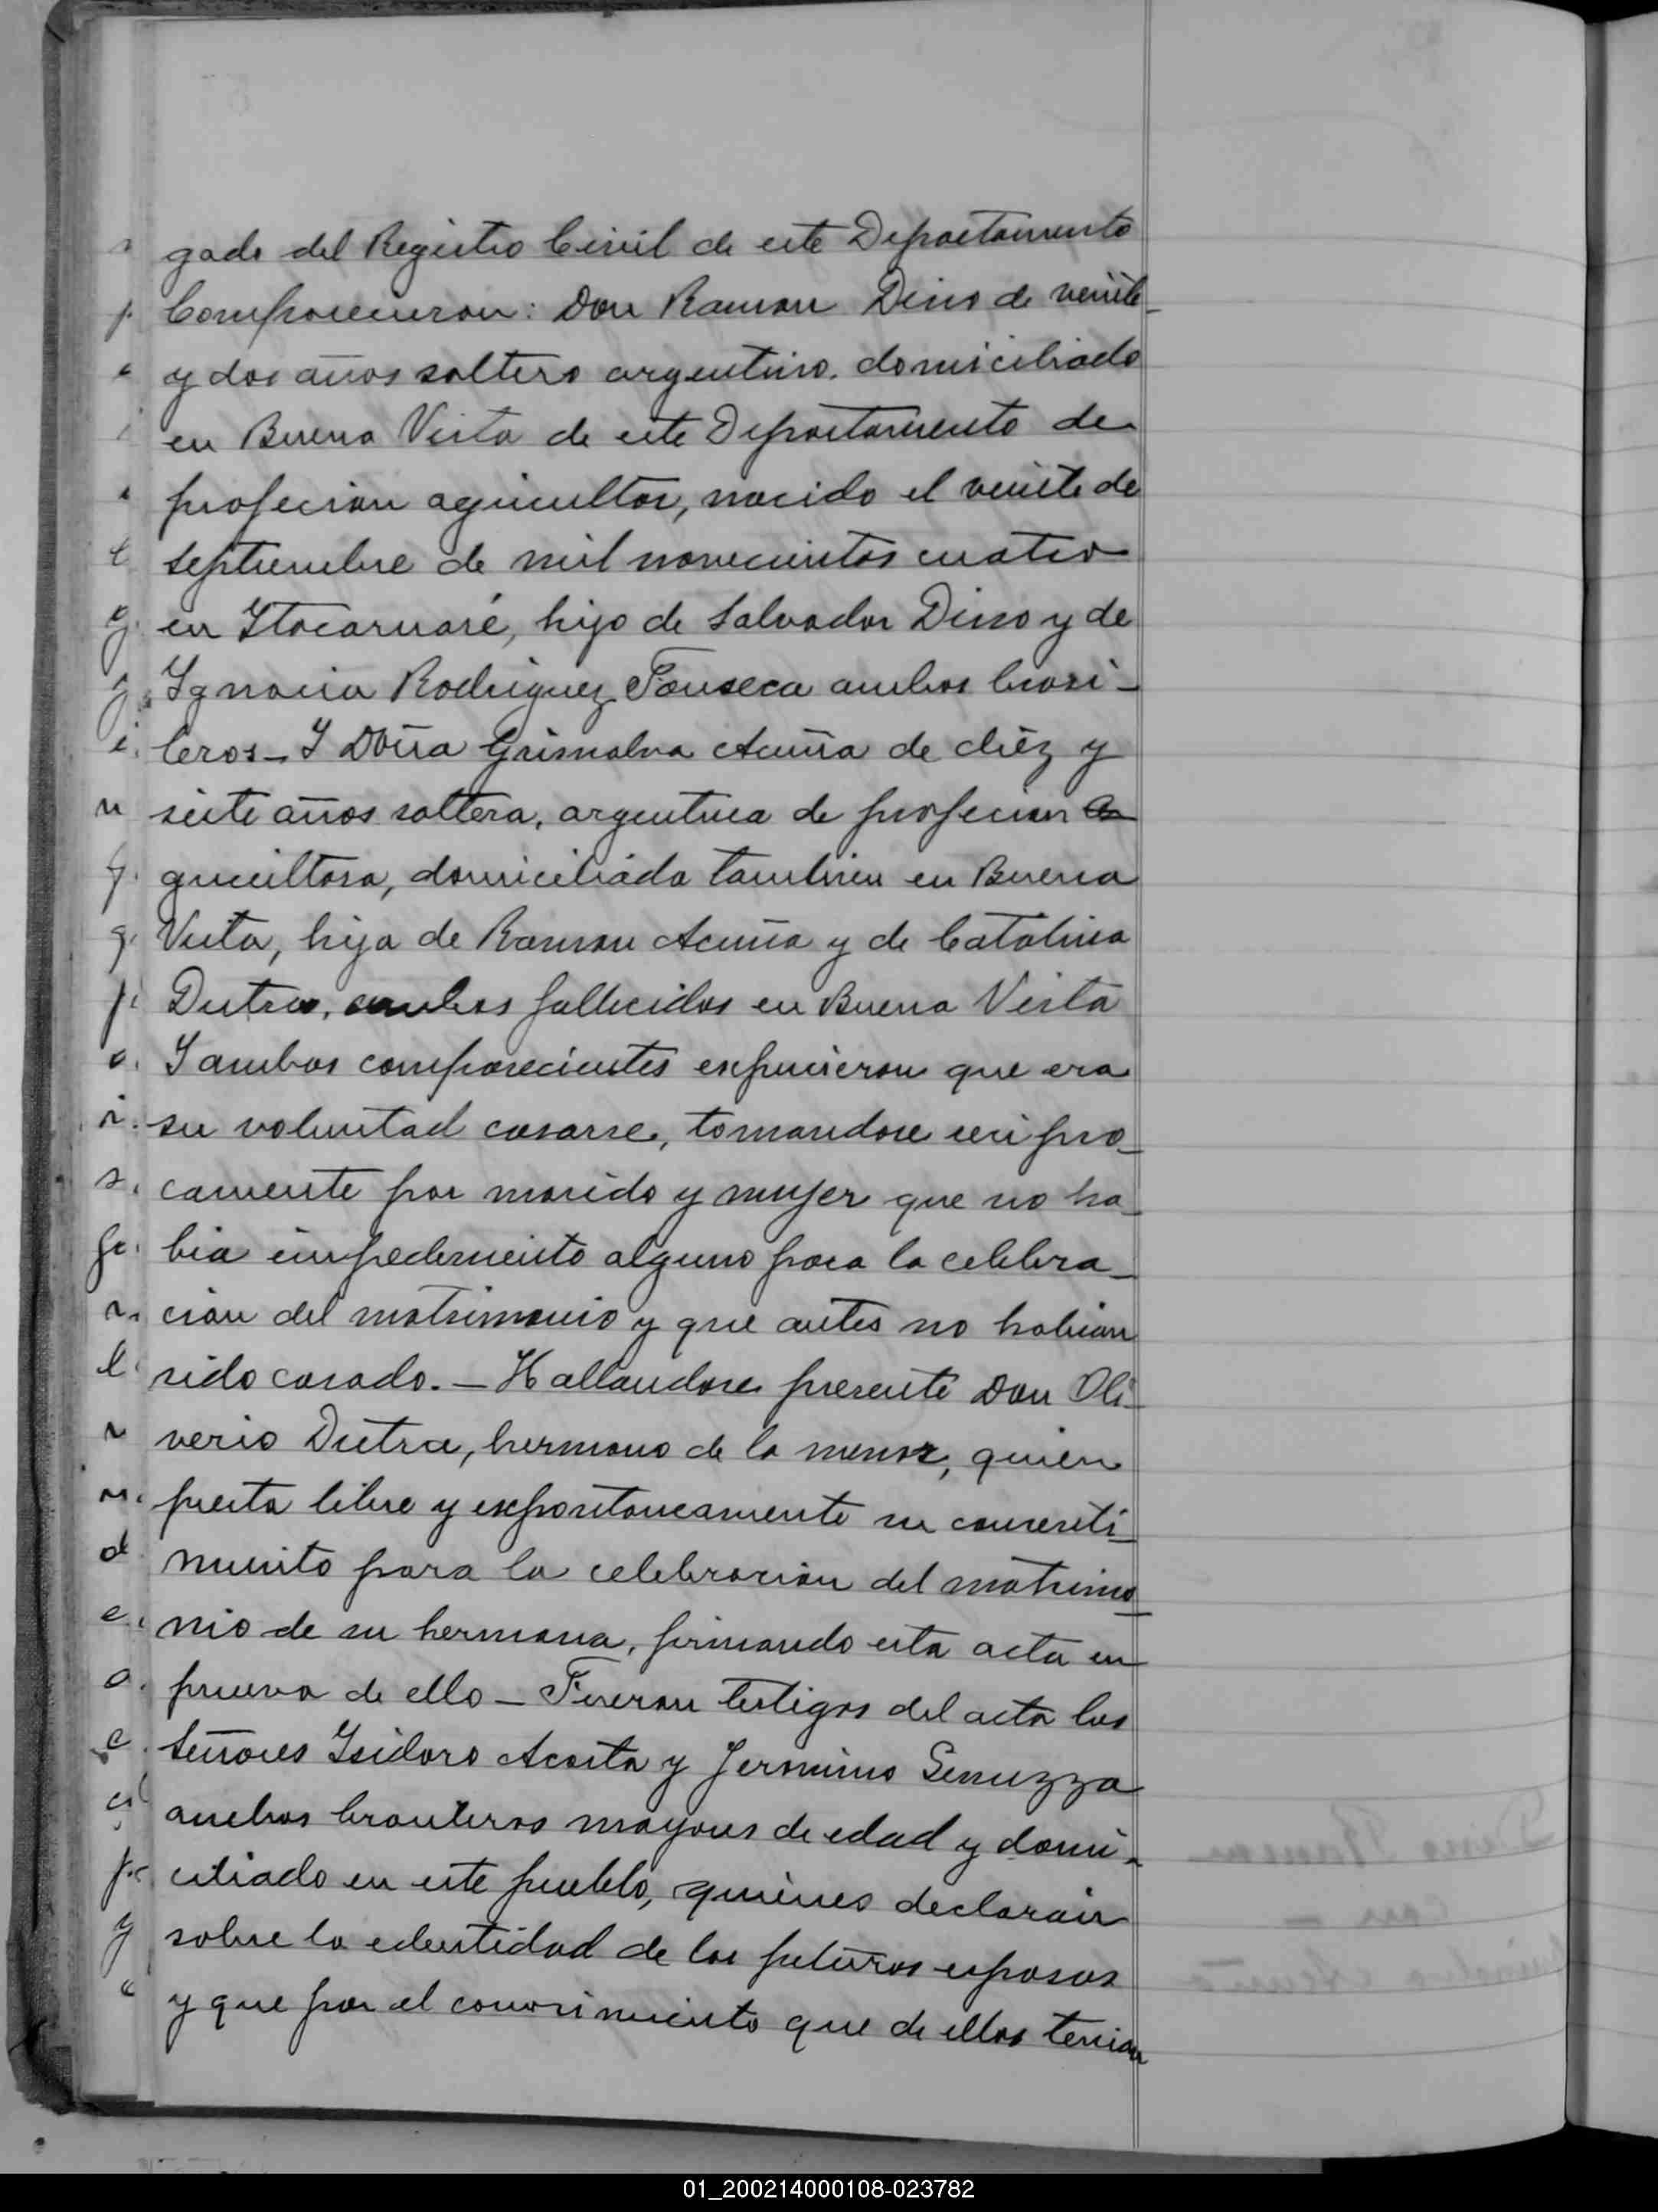 gado del Registro Civil de este Departamento
Comparecieron: Don Ramon Dino de veinte
y dos años soltero argentino. domiciliado
en Buena Vista de este Departamento de
profecion agricultor, nacido el veinte de
septiembre de mil novecientos cuatro
en Itacaruaré, hijo de Salvador Dino y de
Ignacia Rodriguez Fonseca ambos brasi-
leros_ Y Doña Grismalva Acuña de diéz y
siete años soltera, argentina de profecion a
gricultora, domiciliada tambien en Buena
Vista, hija de Ramon Acuña y de Catalina
Dutra, ambos fallecidos en Buena Vista
Y ambos comparecientes expucieron que era
su voluntad casarse, tomandose recipro_
camente por marido y mujer que no ha_
bia impedemento alguno para la celebra_
cion del matrimonio y que antes no habian
sido casado. _ Hallandose presente Don Oli_
verio Dutra, hermano de la menor, quien
presta libre y expontaneamente su consenti_
miento para la celebracion del matrimo_
nio de su hermana, firmando esta acta en
prueva de ello _ Fueron testigos del acta los
señores Isidoro Acosta y Jeronimo Senuzza
ambos brasileros mayores de edad y domi_
ciliado en este pueblo, quienes declaran
sobre la edentidad de los futuros esposos
y que por el conosimiento que de ellos tenian
01_200214000108-023782